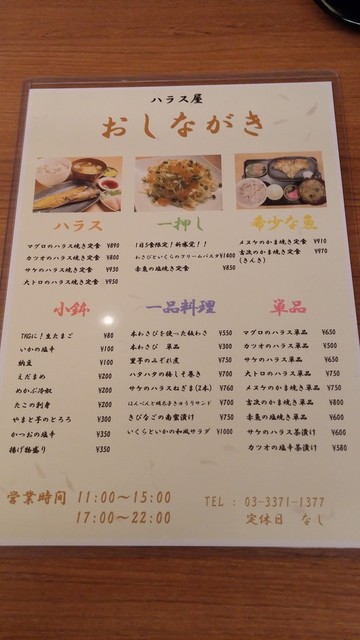 ハラス屋
おしながき
ハラス
マグロのハラス焼き定食 ¥890
カツオのハラス焼き定食 ¥800
サケのハラス焼き定食 ¥930
大トロのハラス焼き定食 ¥950
一押し
1日5食限定!新感覚!!
わさびといくらのクリームパスタ ¥1400
赤魚の塩焼き定食 ¥850
希少な魚
メヌケのかま焼き定食 ¥910
吉次のかま焼き定食 ¥970
(きんき)
小鉢
TKGに!生たまご ¥80
いかの塩辛 ¥100
納豆 ¥100
えだまめ ¥200
めかぶ冷奴 ¥200
たこの刺身 ¥200
やまと芋のとろろ ¥300
かつおの塩辛 ¥350
揚げ物盛り ¥350
一品料理
本わさびを使った板わさ ¥550
本わさび 単品 ¥300
里芋のみぞれ煮 ¥750
ハタハタの梅しそ巻き ¥700
サケのハラスねぎま(2本) ¥760
はんぺんと明太子きゅうりサンド ¥700
きびなごの南蛮漬け ¥750
いくらといかの和風サラダ ¥1000
単品
マグロのハラス単品 ¥650
カツオのハラス単品 ¥500
サケのハラス単品 ¥650
大トロのハラス単品 ¥750
メヌケのかま焼き単品 ¥750
吉次のかま焼き単品 ¥800
赤魚の塩焼き単品 ¥600
サケのハラス茶漬け ¥600
カツオの塩辛茶漬け ¥580
営業時間 11:00～15:00
17:00～22:00
TEL : 03-3371-1377
定休日 なし